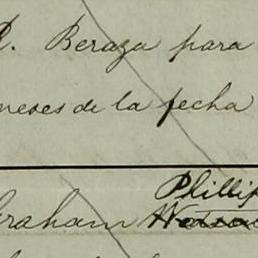 R. Beraza para
meses de la fecha
Phillip
braham